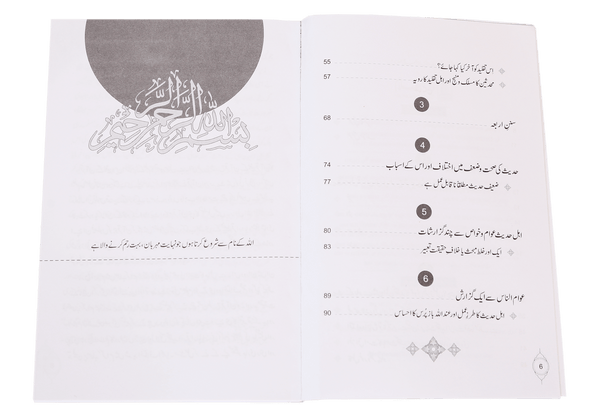 اس تقلید کو آخر کیا کہا جائے؟ 55
محدثین کا مسلک و منہج اور اہل تقلید کا رویہ 57
3
سنن اربعہ 68
4
حدیث کی صحت و ضعف میں اختلاف اور اس کے اسباب 74
ضعیف حدیث مطلقاً ناقابل عمل ہے 77
5
اہل حدیث عوام و خواص سے چند گزارشات 80
ایک اور غلط مبحث یا خلاف حقیقت تعبیر 83
6
عوام الناس سے ایک گزارش 89
اہل حدیث کا طرز عمل اور عند اللہ باز پرس کا احساس 90
6
بسم الله الرحمن الرحيم
اللہ کے نام سے شروع کرتا ہوں جو نہایت مہربان، بہت رحم کرنے والا ہے